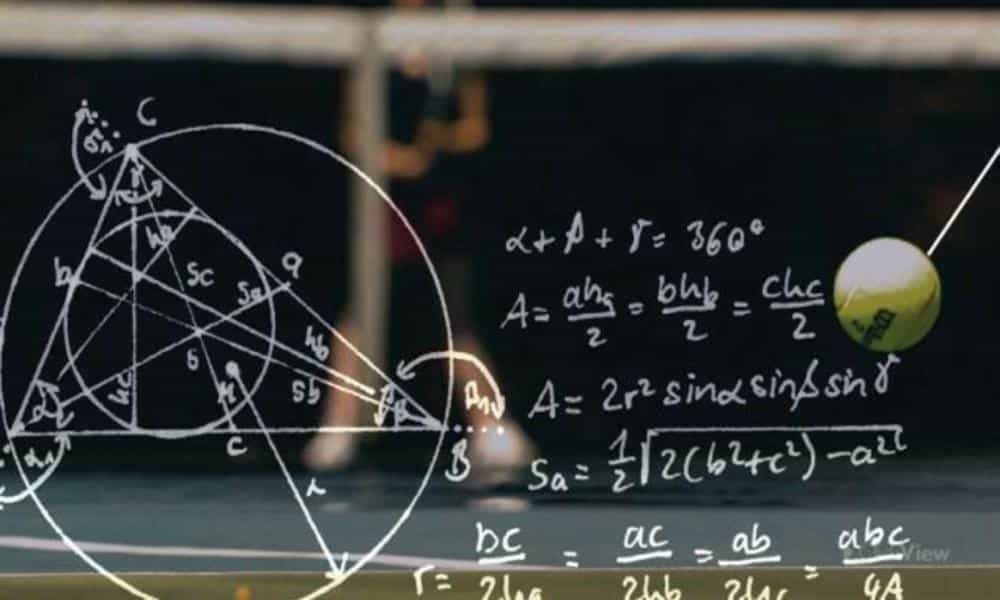 C
b
a
hc
Sc
Sa
hb
Sb
G
M
hc
α
β
α1
β1
C
B
r
α + β + γ = 360°
A = aha/2 = bhb/2 = chc/2
A = 2r² sinα sinβ sinγ
Sa = 1/2 √2(b²+c²) - a²
r = bc/2ha = ac/2hb = ab/2hc = abc/4A
View